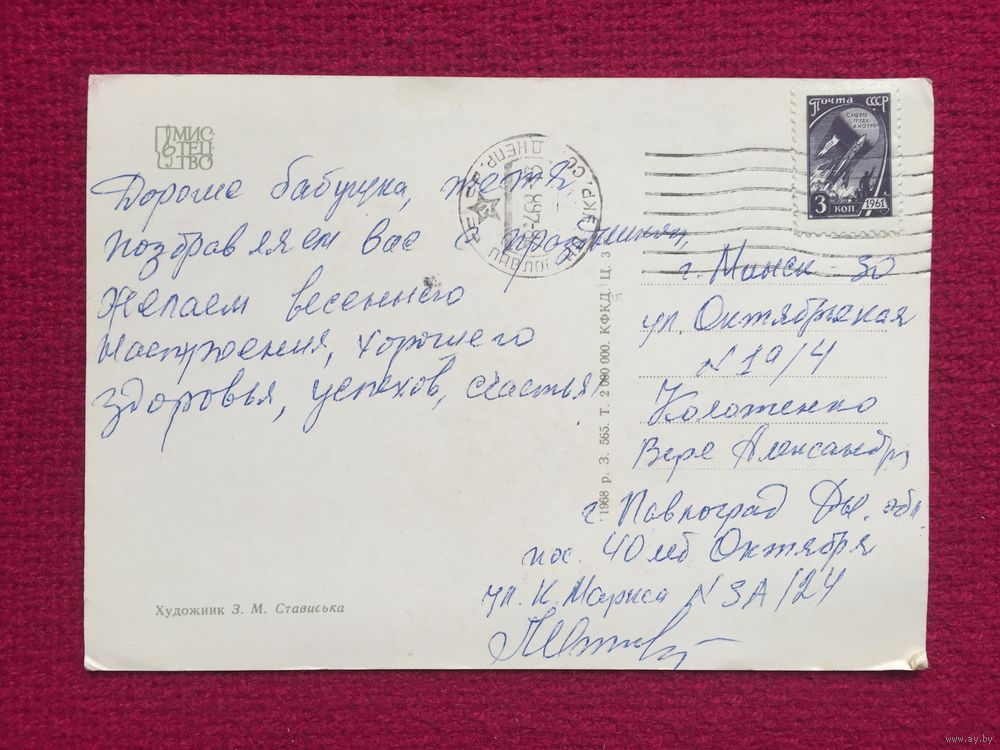 МИС
ТЕЦ
ТВО
Дорогие бабушка, тетя
поздравляем вас с праздником,
желаем весеннего
настроения, хорошего
здоровья, успехов, счастья
Художник З. М. Стависька
1968 р. З. 565. Т. 2 000 000. КФКД. Ц. 3
Почта СССР
СЛАВА
ТРУДУ
И НАУКЕ
3 КОП
1961
г. Минск - 30
ул. Октябрьская
N 19/4
Коложенко
Вере Александр
г. Павлоград Дн. обл.
пос. 40 лет Октября
ул. К. Маркса N 3А/24
www.ay.by